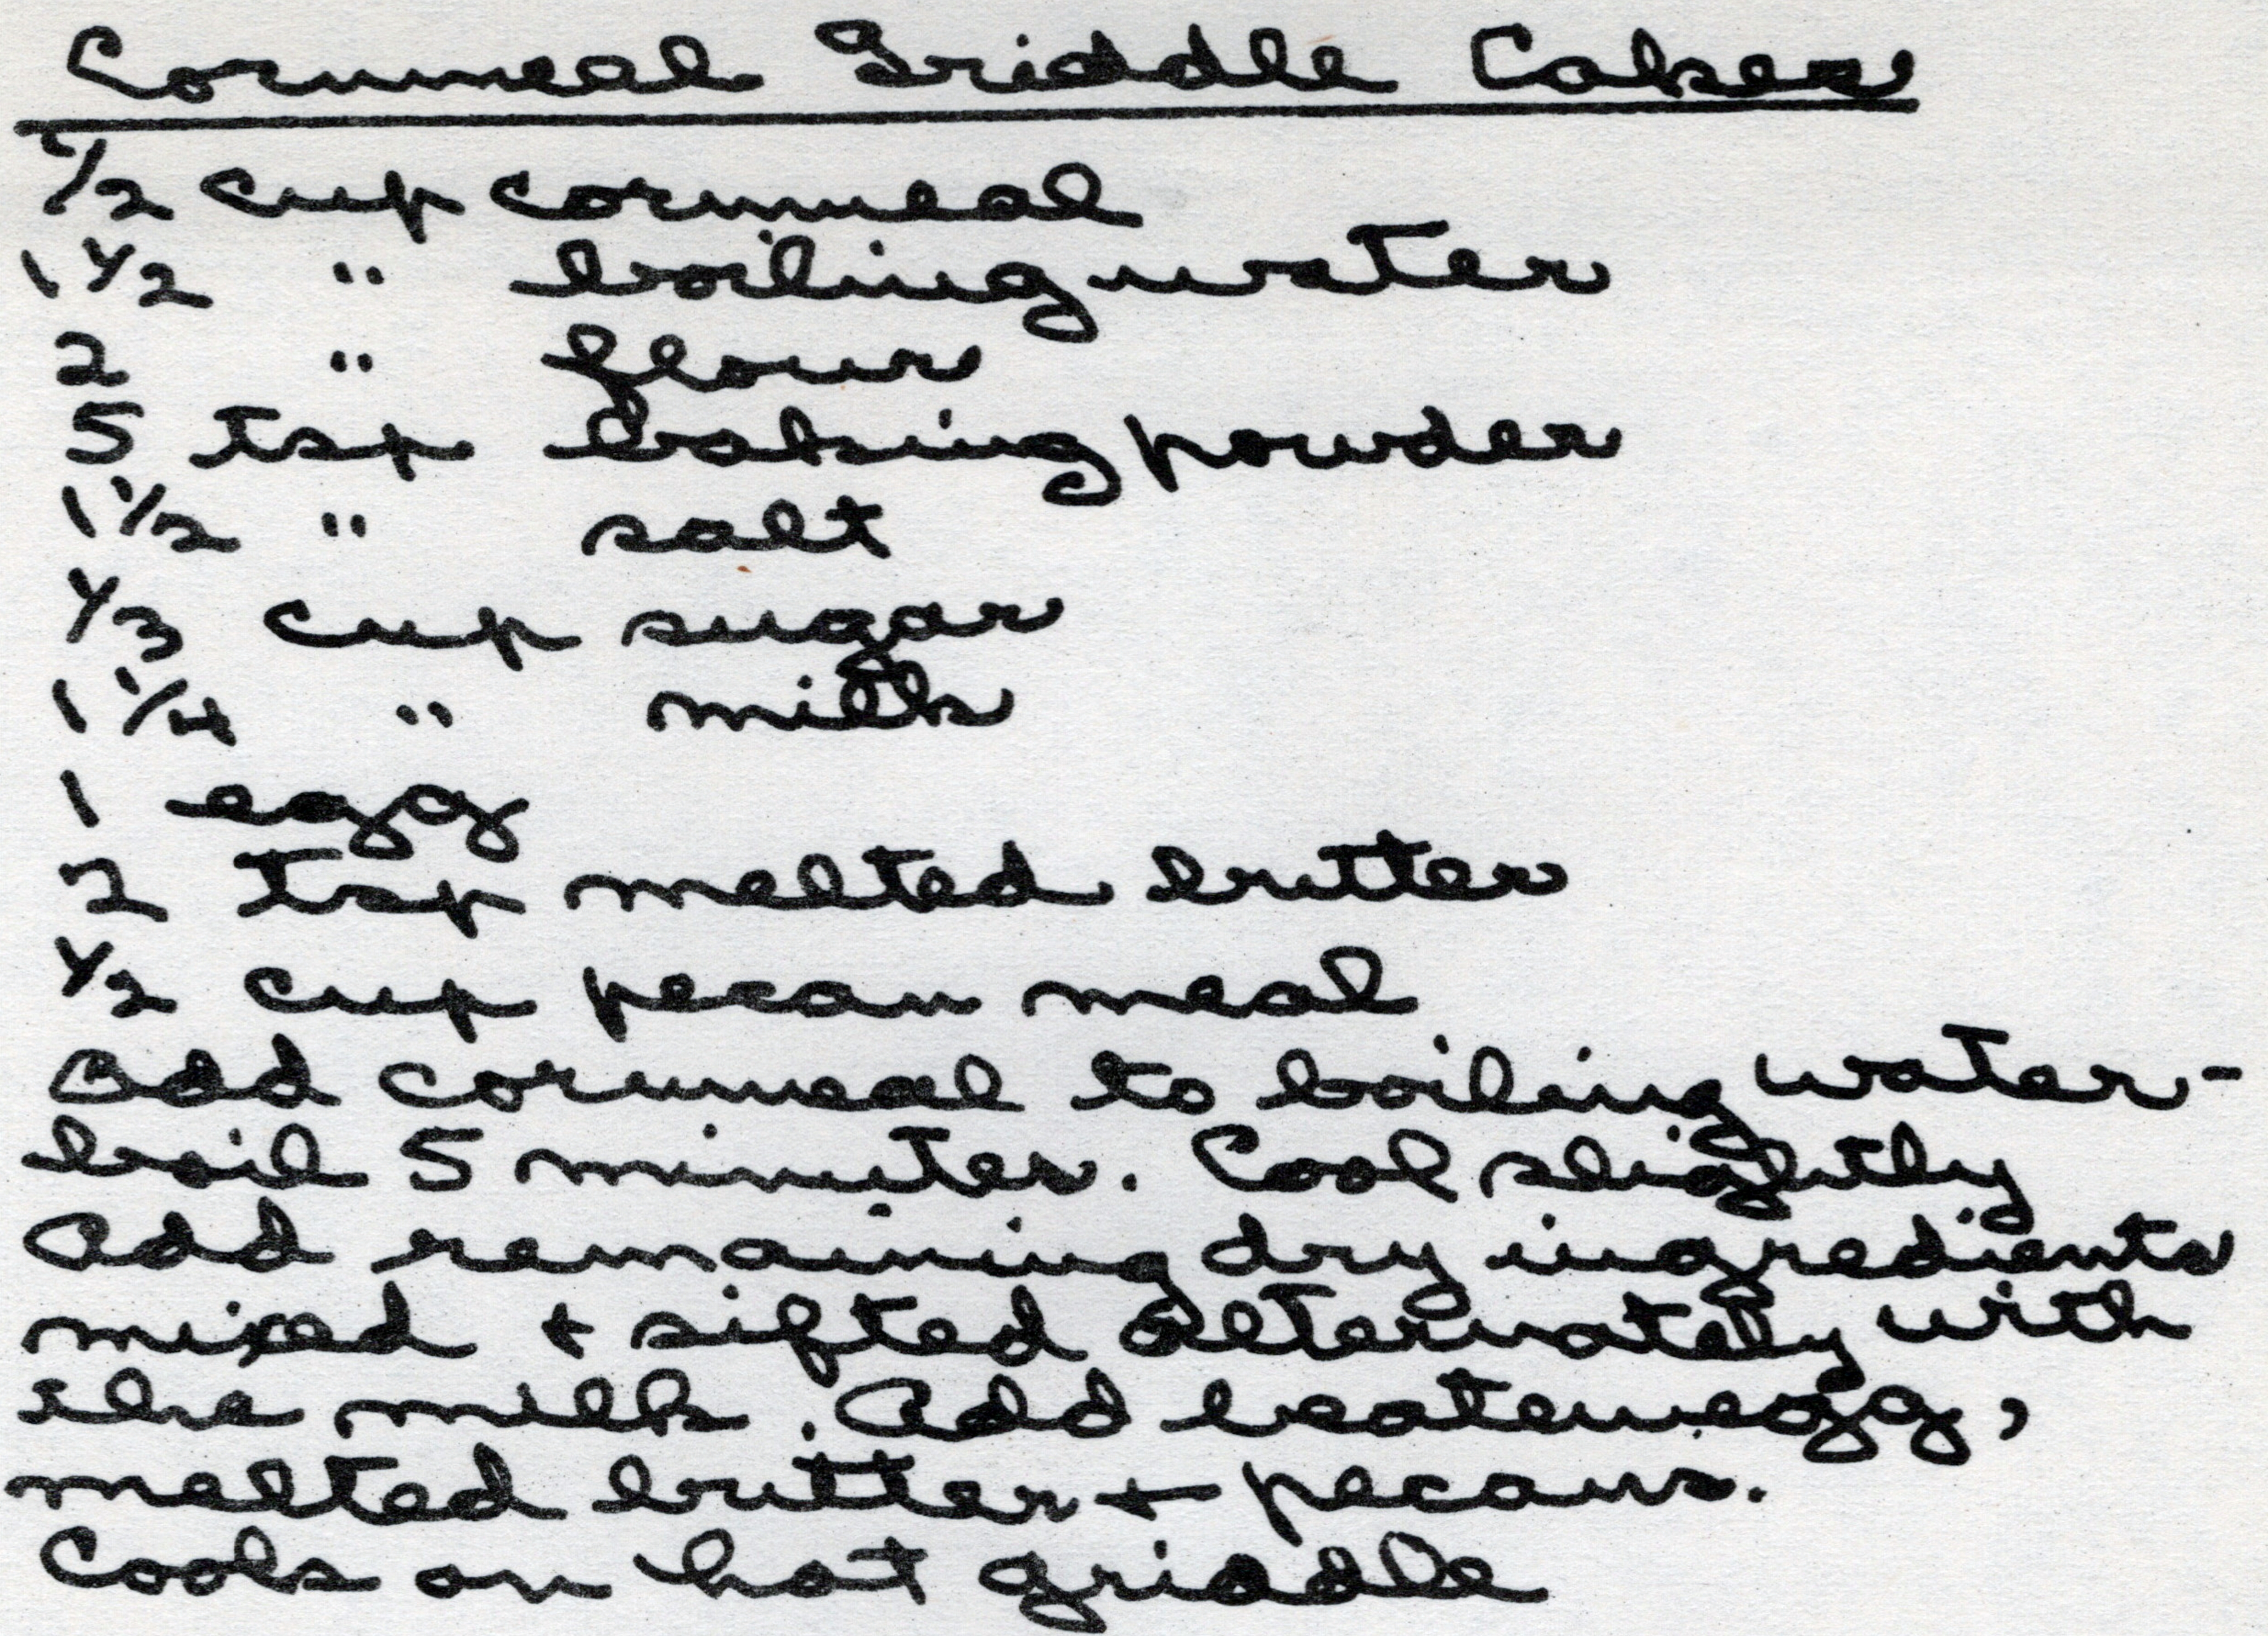 Cornmeal Griddle Cakes
1/2 cup cornmeal
1 1/2 " boiling water
2 " flour
5 tsp baking powder
1 1/2 " salt
1/3 cup sugar
1 1/4 " milk
1 egg
2 tsp melted butter
1/2 cup pecan meal
Add cornmeal to boiling water -
boil 5 minutes. Cool slightly
Add remaining dry ingredients
mixed + sifted alternately with
the milk. Add beaten egg,
melted butter + pecans.
Cook on hot griddle